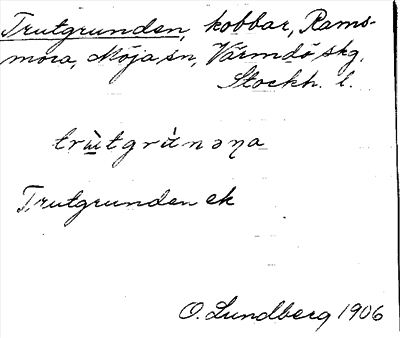 Trutgrunden, kobbar, Rams-
mora, Möja sn, Värmdö skg,
Stockh. l.
trɯ̀tgrɯ̀nəɳa
Trutgrunden ek
O. Lundberg 1906